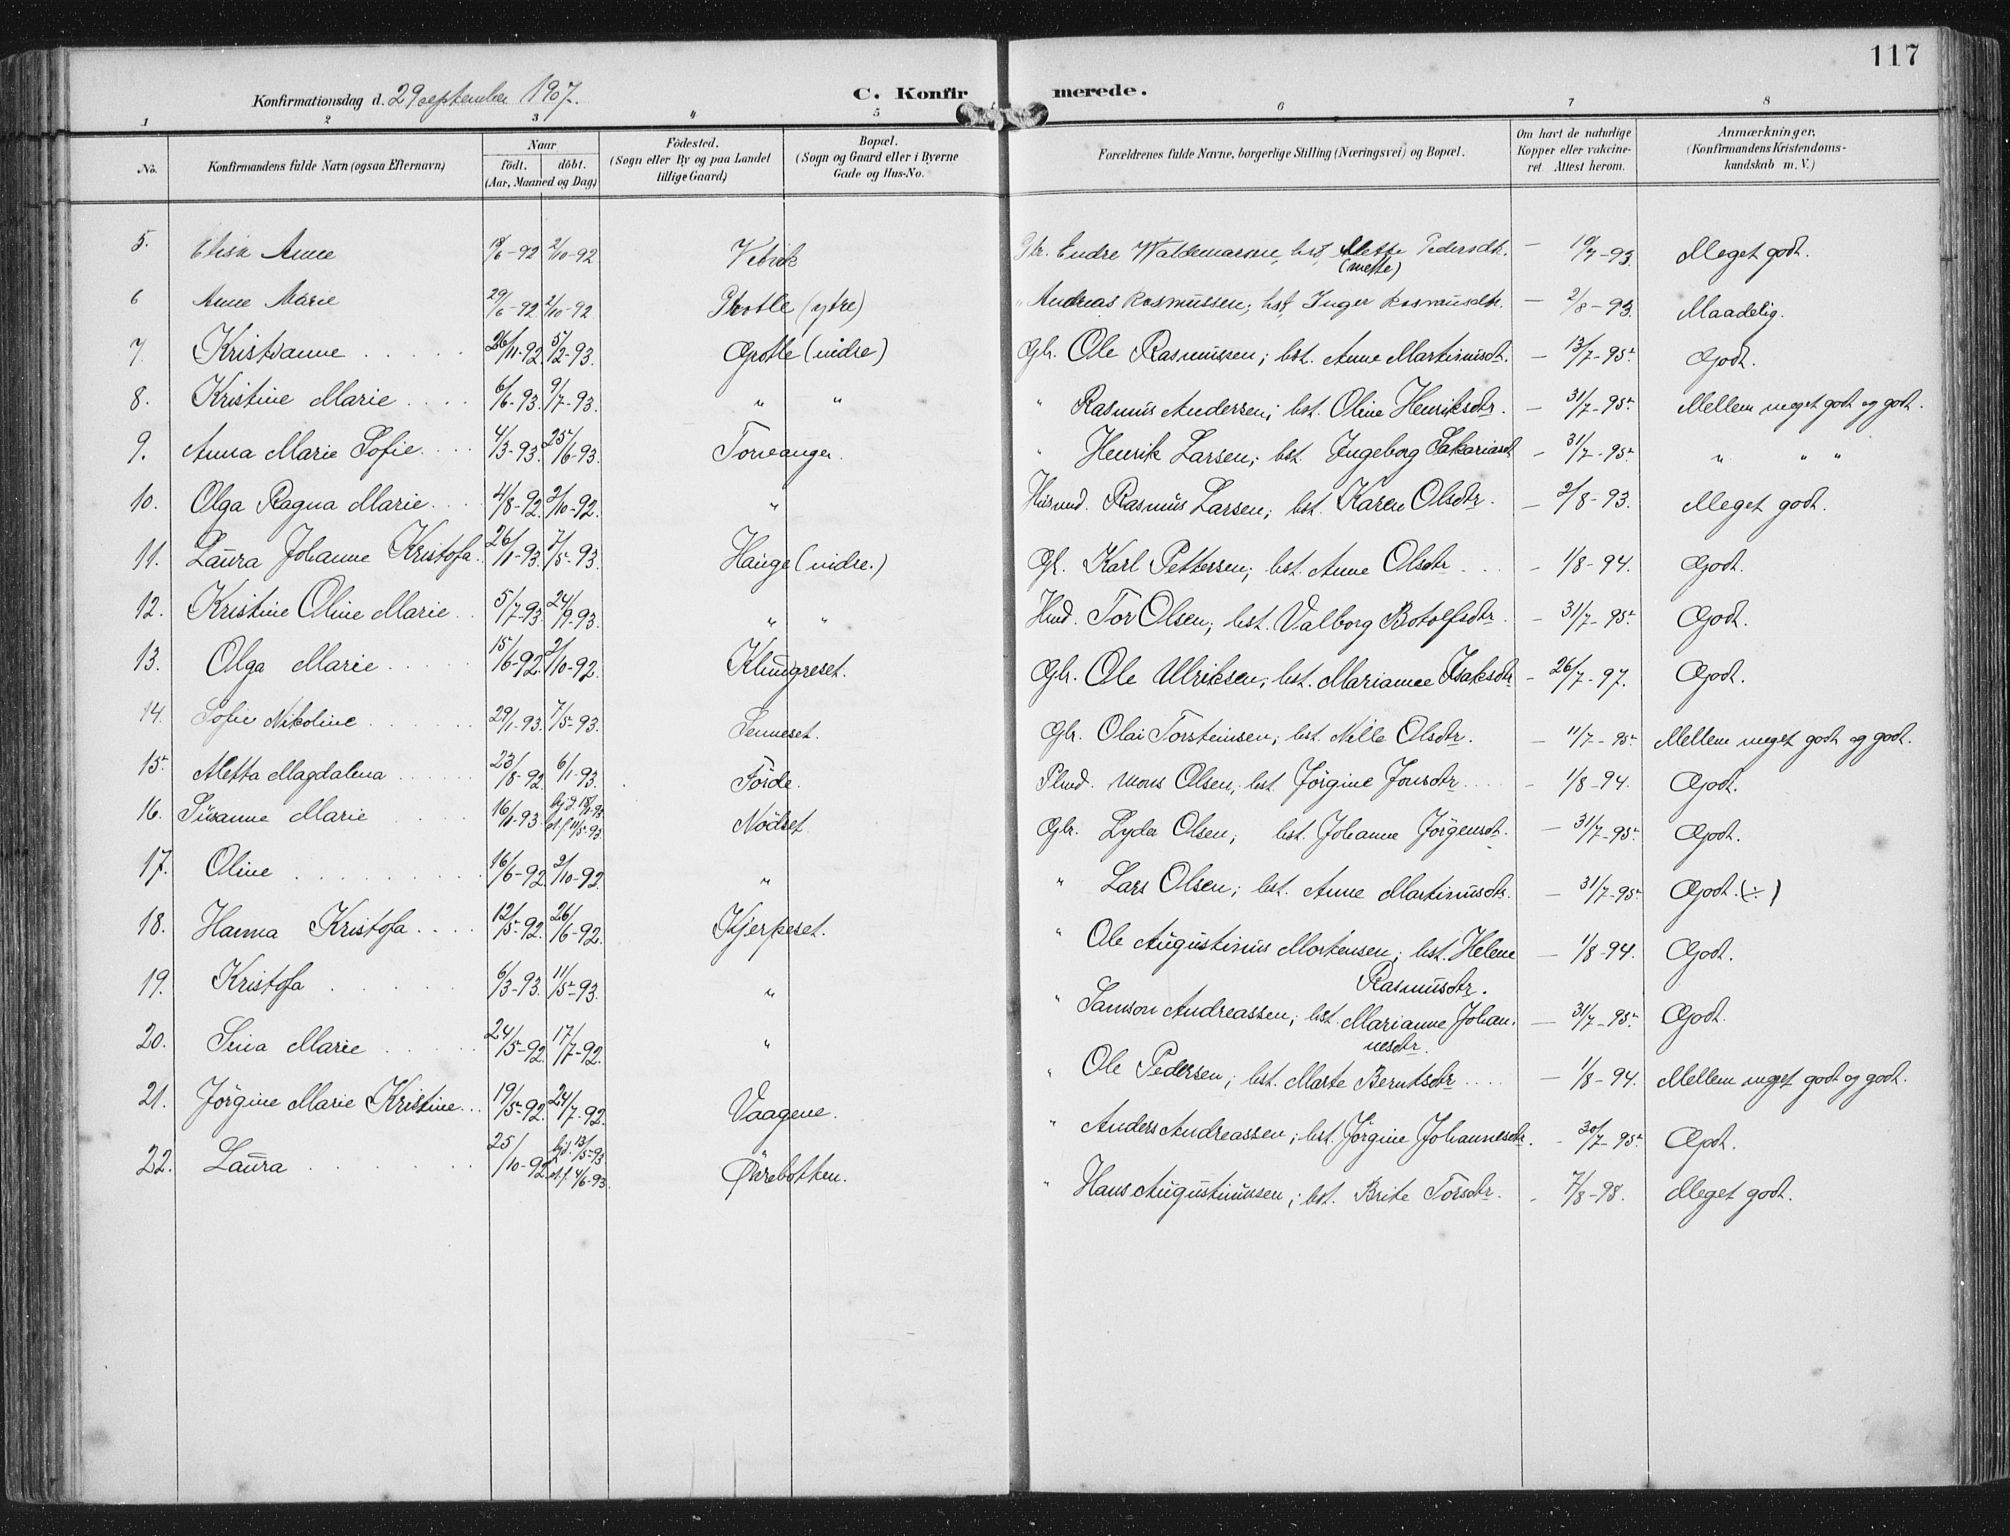 117
Konfirmationsdag d. 29 september 1907. C. Konfirmerede.
1 2 3 4 5 6 7 8
No. Konfirmandens fulde Navn (ogsaa Efternavn) Naar födt. döbt. (Aar, Maaned og Dag) Födested. (Sogn eller By og paa Landet tillige Gaard) Bopæl. (Sogn og Gaard eller i Byerne Gade og Hus-No. Forældrenes fulde Navne, borgerlige Stilling (Næringsvei) og Bopæl. Om havt de naturlige Kopper eller vakcineret Attest herom. Anmærkninger, (Konfirmandens Kristendomskundskab m. V.)
5. Elisa Anne /6-92 2/10-92 Endre Waldemarsen, hst. Mette Pedersdtr. (Mette) — /7-93. Meget godt.
6 Anne Marie 29/6-92 2/10-92 (ytre) " Andreas Rasmussen; hst. Inger Rasmusdtr. — 2/8-93. Maadelig.
7. Kristianne 26/11-92. 5/2-93. Grotle (indre) Gbr. Ole Rasmussen; hst. Anne Martinusdt. — 13/7-95. Godt.
8. Kristine Marie 6/6-93. 9/7-93. " " " Rasmus Andersen; hst. Oline Henriksdtr. — 31/7-95. Mellem meget godt og godt.
9. Anna Marie Sofie 4/3-93. 25/6-93. Torvanger. " Henrik Larsen; hst. Ingeborg Sakariasdt — 31/7-95. " " "
10. Olga Ragna Marie 4/8-92. 2/10-92. " Husmd. Rasmus Larsen; hst. Karen Olsdtr. — 2/8-93. Meget godt.
11. Laura Johanne Kristofa 26/1-93. 7/5-93. Hauge (indre.) Gbr. Karl Pettersen; hst. Anne Olsdtr — 1/8-94. Godt.
12. Kristine Oline Marie 5/7-93. 24/9-93. " " Hmd. Tor Olsen; hst. Valborg Botolfsdtr — 31/7-95. Godt.
13. Olga Marie 15/6-92. 2/10-92. Klungreset. Gbr. Ole Ulriksen, hst. Marianne Isaksdtr — 26/7-97. Godt.
14. Sofie Nikoline 29/1-93. 7/5-93. Senneset. Gbr. Olai Torsteinsen; hst. Nille Olsdtr. — 11/7-95. Mellem meget godt og godt.
15. Aletta Magdalena 23/8-92. 6/1-93. Förde. Plmd. Mons Olsen, hst. Jörgine Jonsdtr — 1/8-94. Godt.
16. Susanne Marie 16/1-93. hj.d. 18/1-93 st.f. 11/5-93. Nödset Gbr. Lyder Olsen; hst. Johanne Jörgensdt. — 31/7-95. Godt.
17. Oline 16/6-92. 2/10-92. " " Lars Olsen; hst. Anne Martinusdtr. — 31/7-95. Godt. (÷)
18. Hanna Kristofa 12/5-92. 26/6-92. Kjerpeset. " Ole Augustinus Mortensen; hst. Helene Rasmusdtr. — 1/8-94. Godt.
19. Kristofa 6/3-93. 11/5-93. " " Samson Andreassen; hst. Marianne Johannesdtr. — 31/7-95. Godt.
20. Sina Marie 24/5-92. 17/7-92. " " Ole Pedersen; hst. Marte Berntsdtr — 1/8-94. Mellem meget godt og godt.
21. Jörgine Marie Kristine 19/5-92. 24/7-92. Vaagene. " Anders Andreassen; hst. Jörgine Johannesdtr. — 30/7-95. Godt.
22. Laura 25/10-92. hj.d. 13/5-93 st.f. 4/6-93. Örebotten. " Hans Augustinussen; hst. Brite Torsdtr. — 7/8-98. Meget godt.